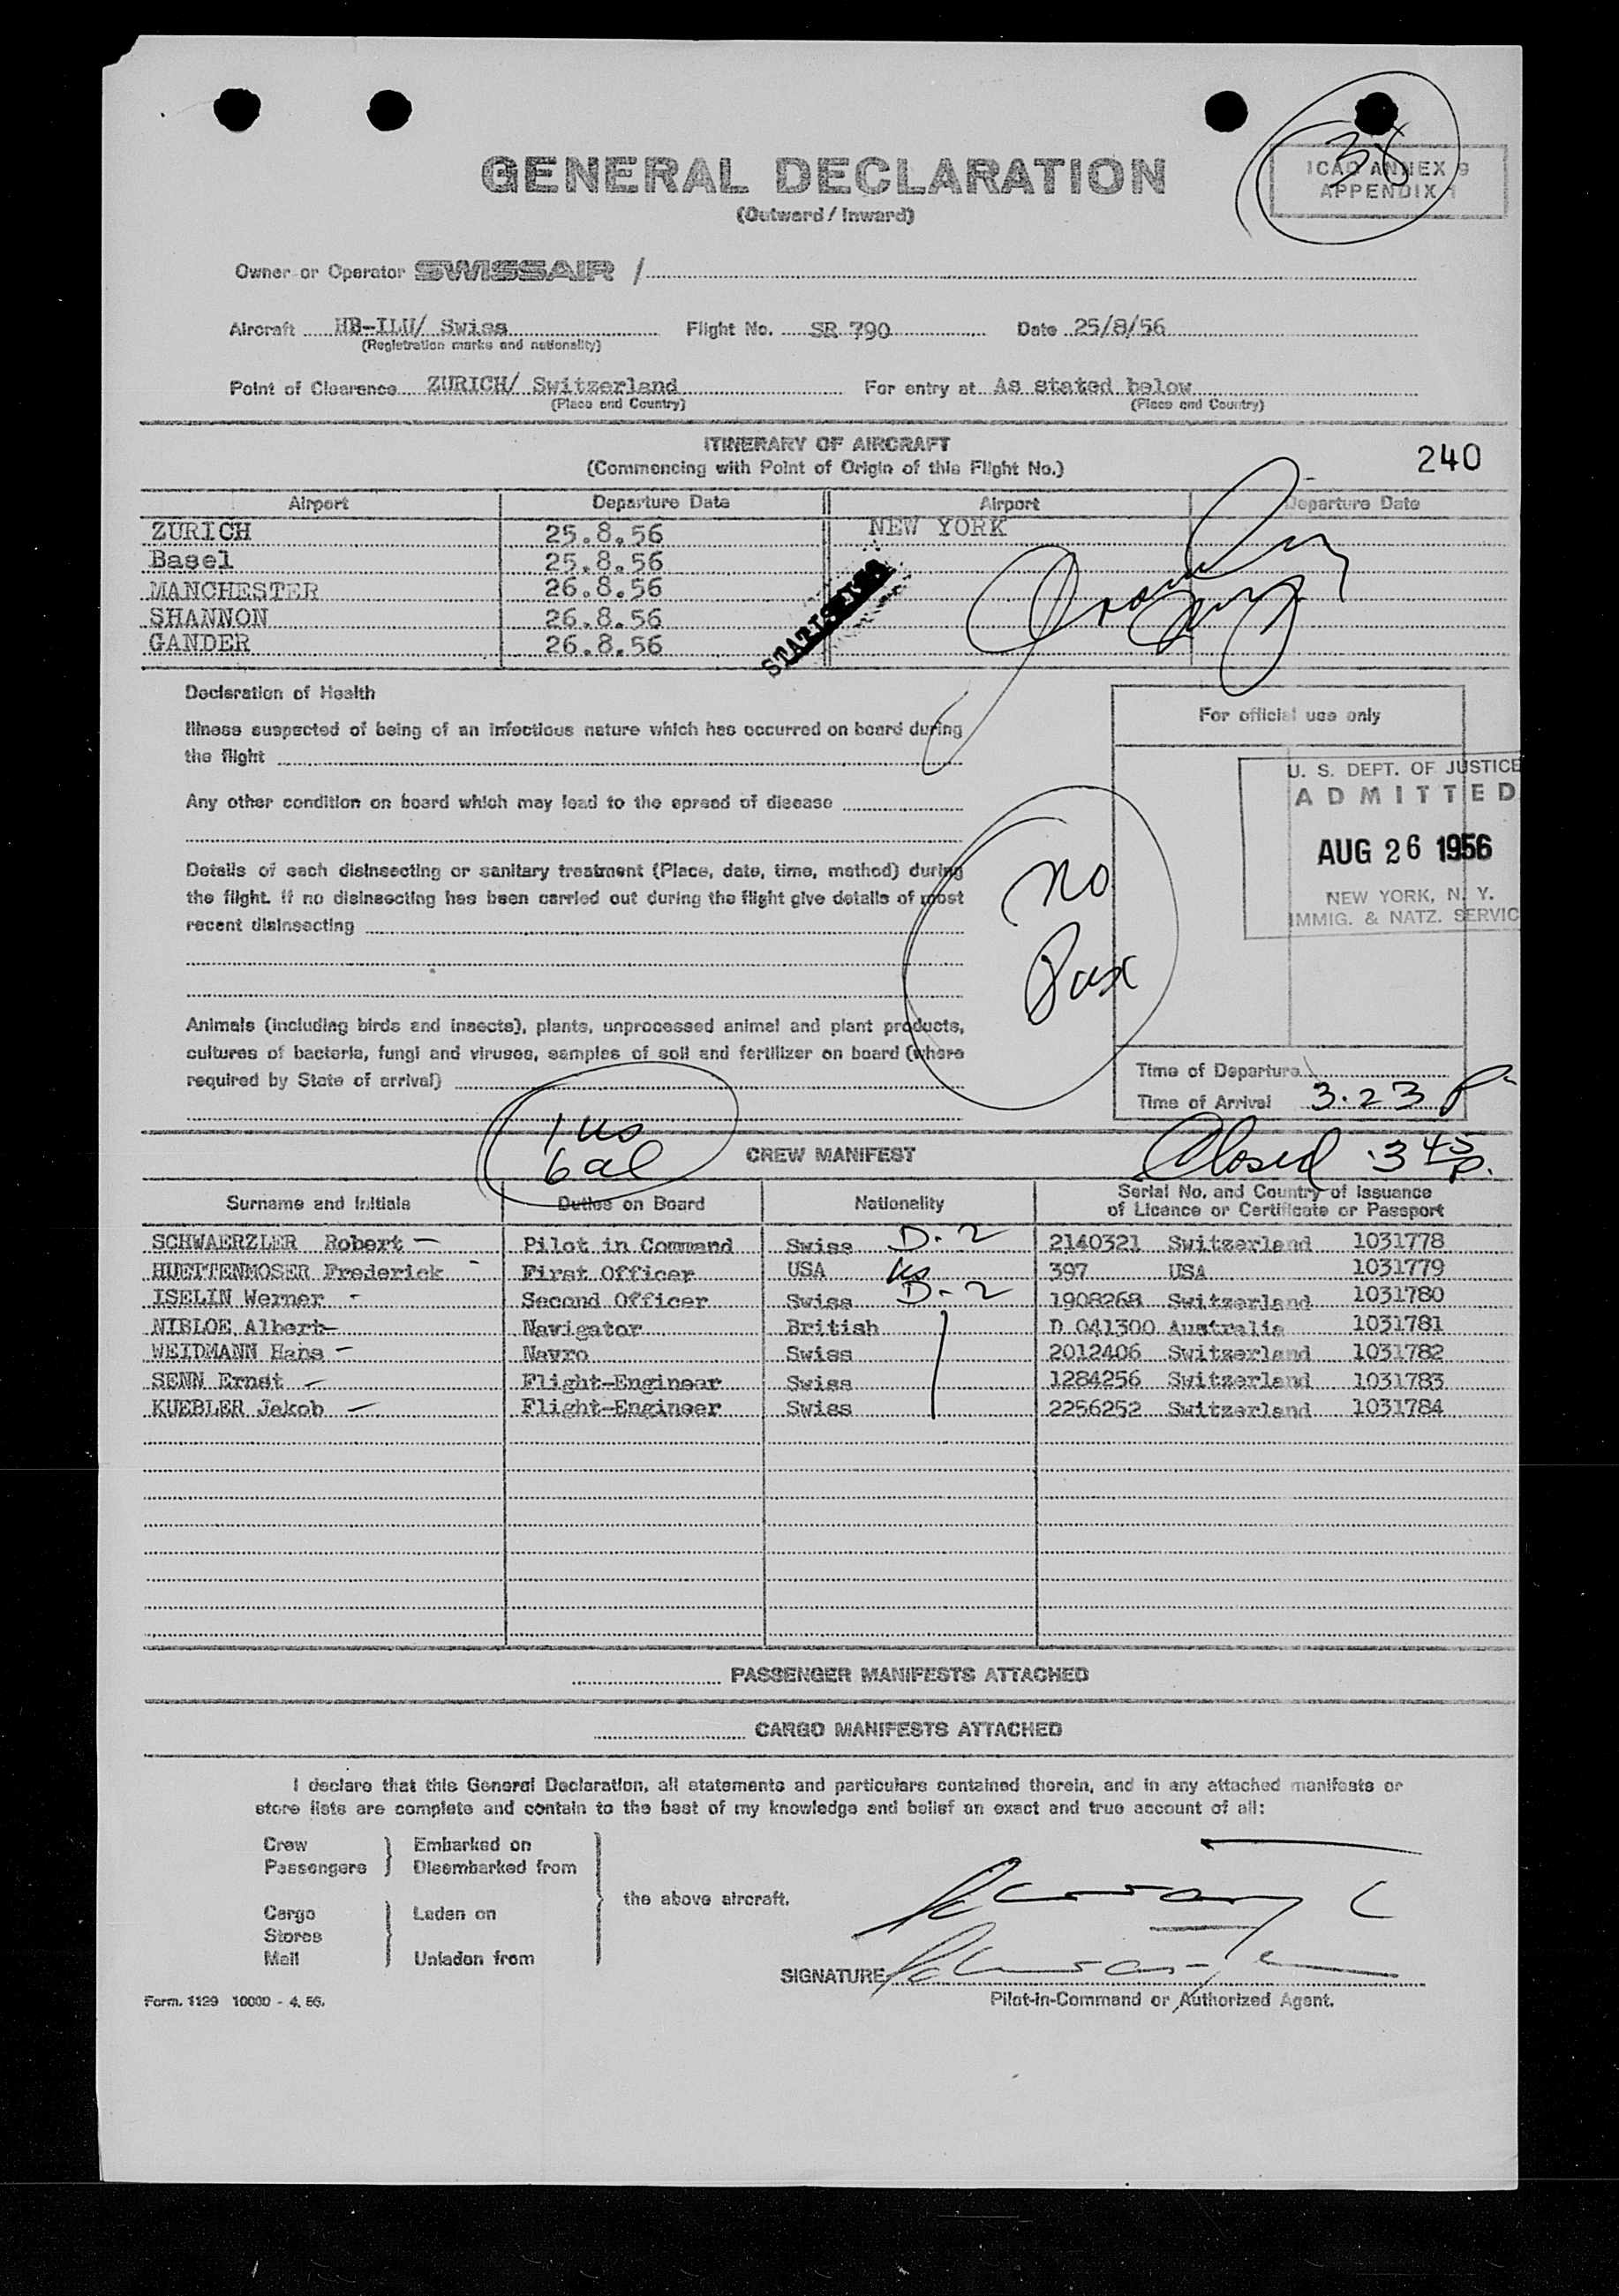 38
ICAO ANNEX 9
APPENDIX 1
GENERAL DECLARATION
(Outward / Inward)
Owner or Operator SWISSAIR /
Aircraft HB-ILU/ Swiss Flight No. SR 790 Date 25/8/56
(Registration marks and nationality)
Point of Clearance ZURICH/ Switzerland For entry at As stated below
(Place and Country) (Place and Country)
ITINERARY OF AIRCRAFT
(Commencing with Point of Origin of this Flight No.)
240
Airport Departure Date Airport Departure Date
ZURICH 25.8.56 NEW YORK
Basel 25.8.56
MANCHESTER 26.8.56
SHANNON 26.8.56
GANDER 26.8.56
Declaration of Health
Illness suspected of being of an infectious nature which has occurred on board during
the flight
Any other condition on board which may lead to the spread of disease
Details of each disinsecting or sanitary treatment (Place, date, time, method) during
the flight. If no disinsecting has been carried out during the flight give details of most
recent disinsecting
Animals (including birds and insects), plants, unprocessed animal and plant products,
cultures of bacteria, fungi and viruses, samples of soil and fertilizer on board (where
required by State of arrival)
no
Pax
For official use only
U. S. DEPT. OF JUSTICE
ADMITTED
AUG 26 1956
NEW YORK, N. Y.
IMMIG. & NATZ. SERVIC
Time of Departure
Time of Arrival 3.23 P
1 us
6 al
CREW MANIFEST
Closed 3 45 p.
Surname and Initials Duties on Board Nationality Serial No. and Country of Issuance
of Licence or Certificate or Passport
SCHWAERZLER Robert Pilot in Command Swiss D-2 2140321 Switzerland 1031778
HUETTENMOSER Frederick First Officer USA us 397 USA 1031779
ISELIN Werner Second Officer Swiss D-2 1908268 Switzerland 1031780
NIBLOE Albert Navigator British D 041300 Australia 1031781
WEIDMANN Hans Navro Swiss 2012406 Switzerland 1031782
SENN Ernst Flight-Engineer Swiss 1284256 Switzerland 1031783
KUEBLER Jakob Flight-Engineer Swiss 2256252 Switzerland 1031784
PASSENGER MANIFESTS ATTACHED
CARGO MANIFESTS ATTACHED
I declare that this General Declaration, all statements and particulars contained therein, and in any attached manifests or
store lists are complete and contain to the best of my knowledge and belief an exact and true account of all:
Crew Embarked on
Passengers Disembarked from
the above aircraft.
Cargo Laden on
Stores
Mail Unladen from
SIGNATURE
Pilot-in-Command or Authorized Agent.
Form. 1129 10000 - 4. 56.